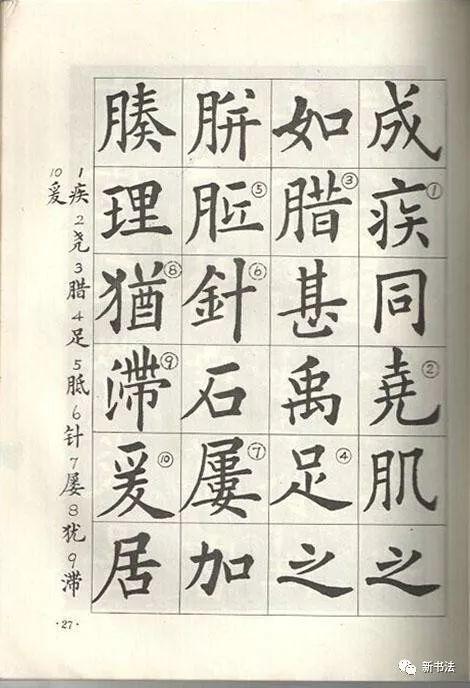 成疾①同堯②肌之
如腊③甚禹足④之
胼胝⑤針⑥石屢⑦加
腠理猶⑧滯⑨爰⑩居
1疾 2尧 3腊 4足 5胝 6针 7屡 8犹 9滞
10爰
·27·
新书法